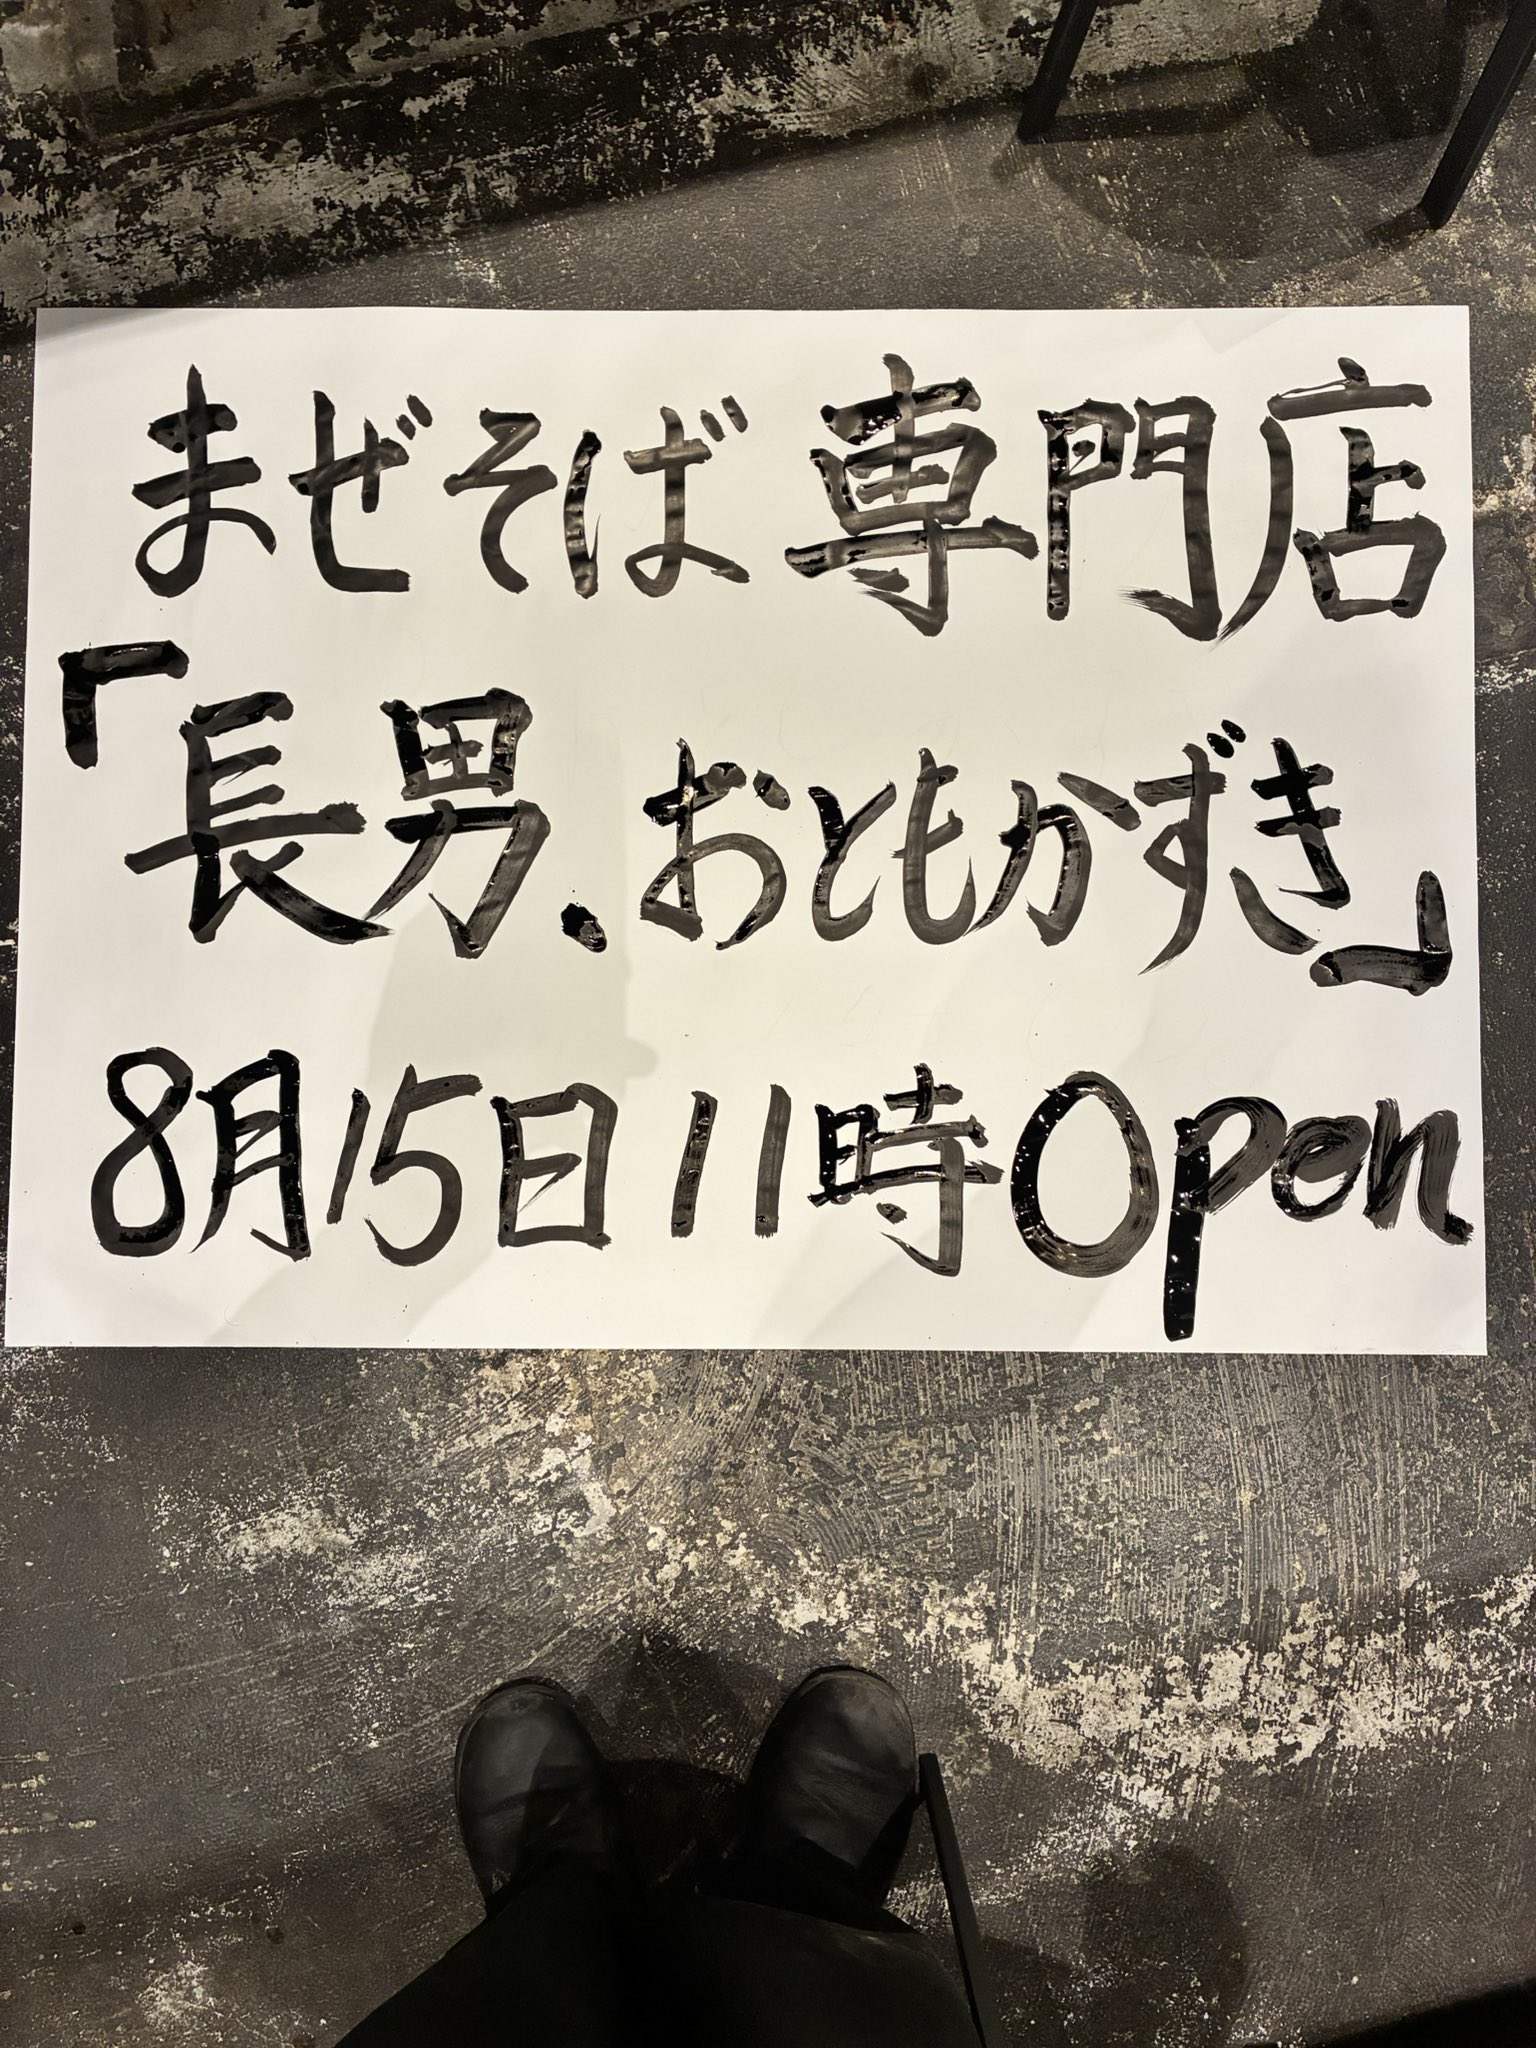 まぜそば専門店
「長男、おともかずき」
8月15日 11時Open